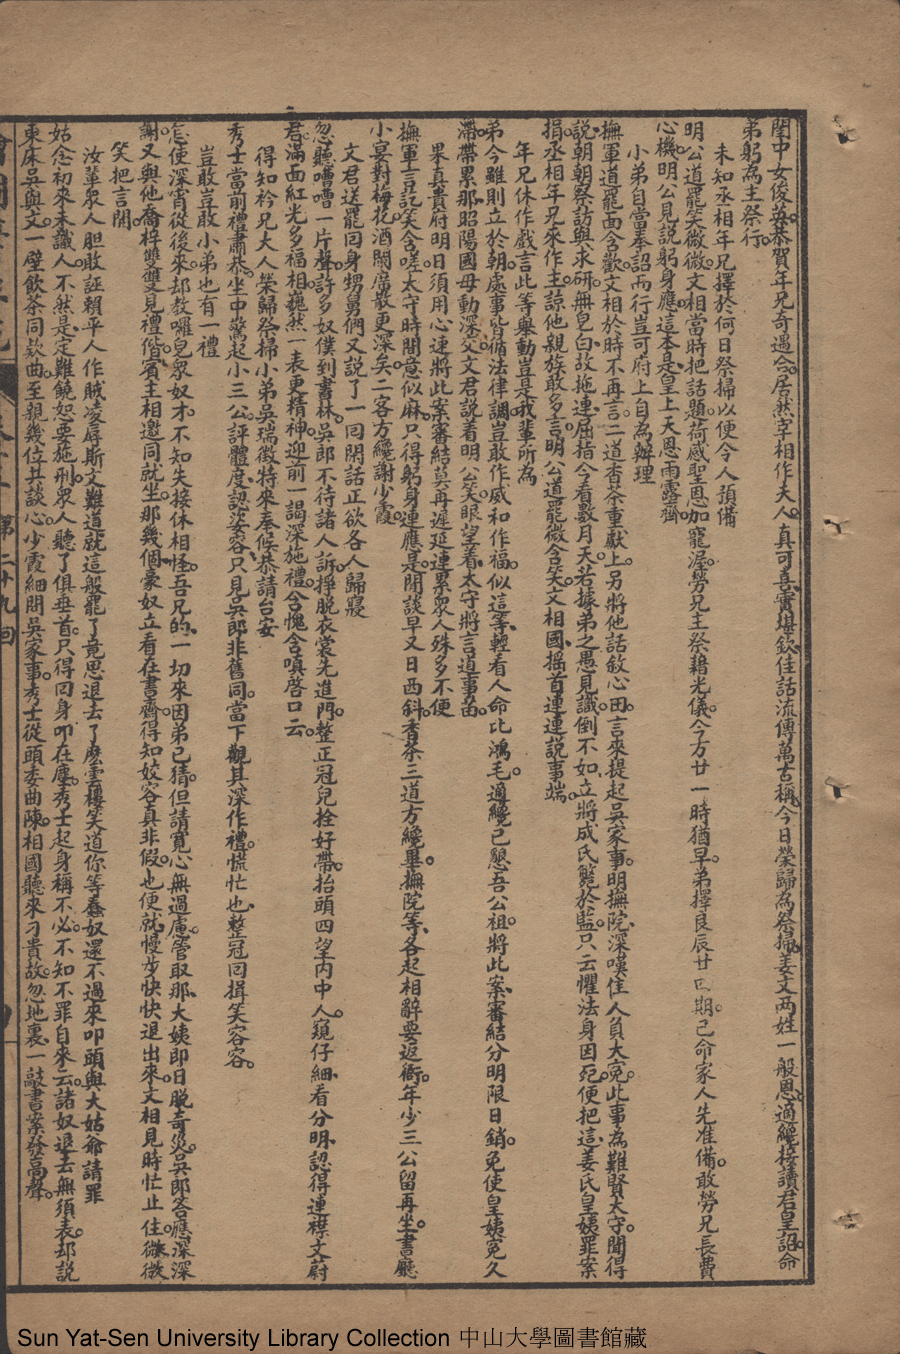 閨中女俊英恭賀年兄奇遇合居然宰相作夫人真可喜實堪欽佳話流傳萬古稱今日榮歸為祭掃姜文兩姓一般恩適纔接讀君皇詔命
弟躬為主祭行
未知丞相年兄擇於何日祭掃以便令人預備
明公道罷笑微微文相當時把話題荷感聖恩加寵渥勞兄主祭藉光儀今方廿一時猶早弟擇良辰廿四期已命家人先准備敢勞兄長費
心機明公見說躬身應這本是皇上天恩雨露齊
小弟自當奉詔而行豈可府上自為辦理
撫軍道罷面含歡文相於時不再言二道杳茶重獻上另將他話敘心田言來提起吳家事明撫院深嘆住人負大冤此事為難賢太守聞得
說朝朝祭訪與求研無皂白故拖連屈指今看數月天若據弟之愚見識倒不如立將成氏斃於監只云懼法身因死便把這姜氏皇姨罪案
捐丞相年兄來作主諒他親族敢多言明公道罷微含笑文相國搖首連連說事端
年兄休作戲言此等舉動豈是我輩所為
弟今雖則立於朝處事皆循法律調豈敢作威和作福似這等輕看人命比鴻毛適纔已懇吾公祖將此案審結分明限日銷免使皇姨冤久
滯帶累那昭陽國母動深交文君說着明公笑眼望着太守將言道事苗
畢真貴府明日須用心速將此案審結莫再遲延連累眾人殊多不便
撫軍言訖笑含嗟太守時間意似麻只得躬身連應是閒談早又日西斜香茶三道方纔畢撫院等各起相辭要返衙年少三公留再坐書廳
小宴對梅花酒闌席散更深矣二客方纔謝少霞
文君送罷回身甥舅們又說了一回閒話正欲各人歸寢
忽聽嘈嘈一片聲許多奴僕到書林吳郎不待諸人訴掙脫衣裳先進門整正冠兒拴好帶抬頭四望內中人窺仔細看分明認得連襟文蔚
君滿面紅光多福相巍然一表更精神迎前一謁深施禮含愧含嗔啓口云
得知衿兄大人榮歸祭掃小弟吳瑞徵特來奉候恭請台安
秀士當前禮肅恭坐中驚起小三公評體度認姿容只見吳郎非舊同當下觀其深作禮慌忙也整冠回揖笑容容
豈敢豈敢小弟也有一禮
怎使深宵從後來却教囉皂眾奴才不知失接休相怪吾兄的一切來因弟已猜但請寬心無過慮管取那大姨即日脫奇災吳郎答應深深
謝又與他喬梓雙雙見禮偕賓主相邀同就坐那幾個豪奴立看在書齋得知姣客真非假也便就慢步怏怏退出來文相見時忙止住微微
笑把言開
汝輩眾人胆敢誣賴平人作賊凌辱斯文難道就這般罷了竟思退去了麽雲樓笑道你等蠢奴還不過來叩頭與大姑爺請罪
姑念初來未識人不然是定難饒恕要施刑眾人聽了俱垂首只得回身叩在塵秀士起身稱不必不知不罪自來云諸奴退去無須表却說
東床吳與文一壁飲茶同欵曲至親幾位共談心少霞細問吳家事秀士從頭委曲陳相國聽來刁貴故忽地裏一敲書案發高聲
第二十九回
Sun Yat-Sen University Library Collection 中山大學圖書館藏